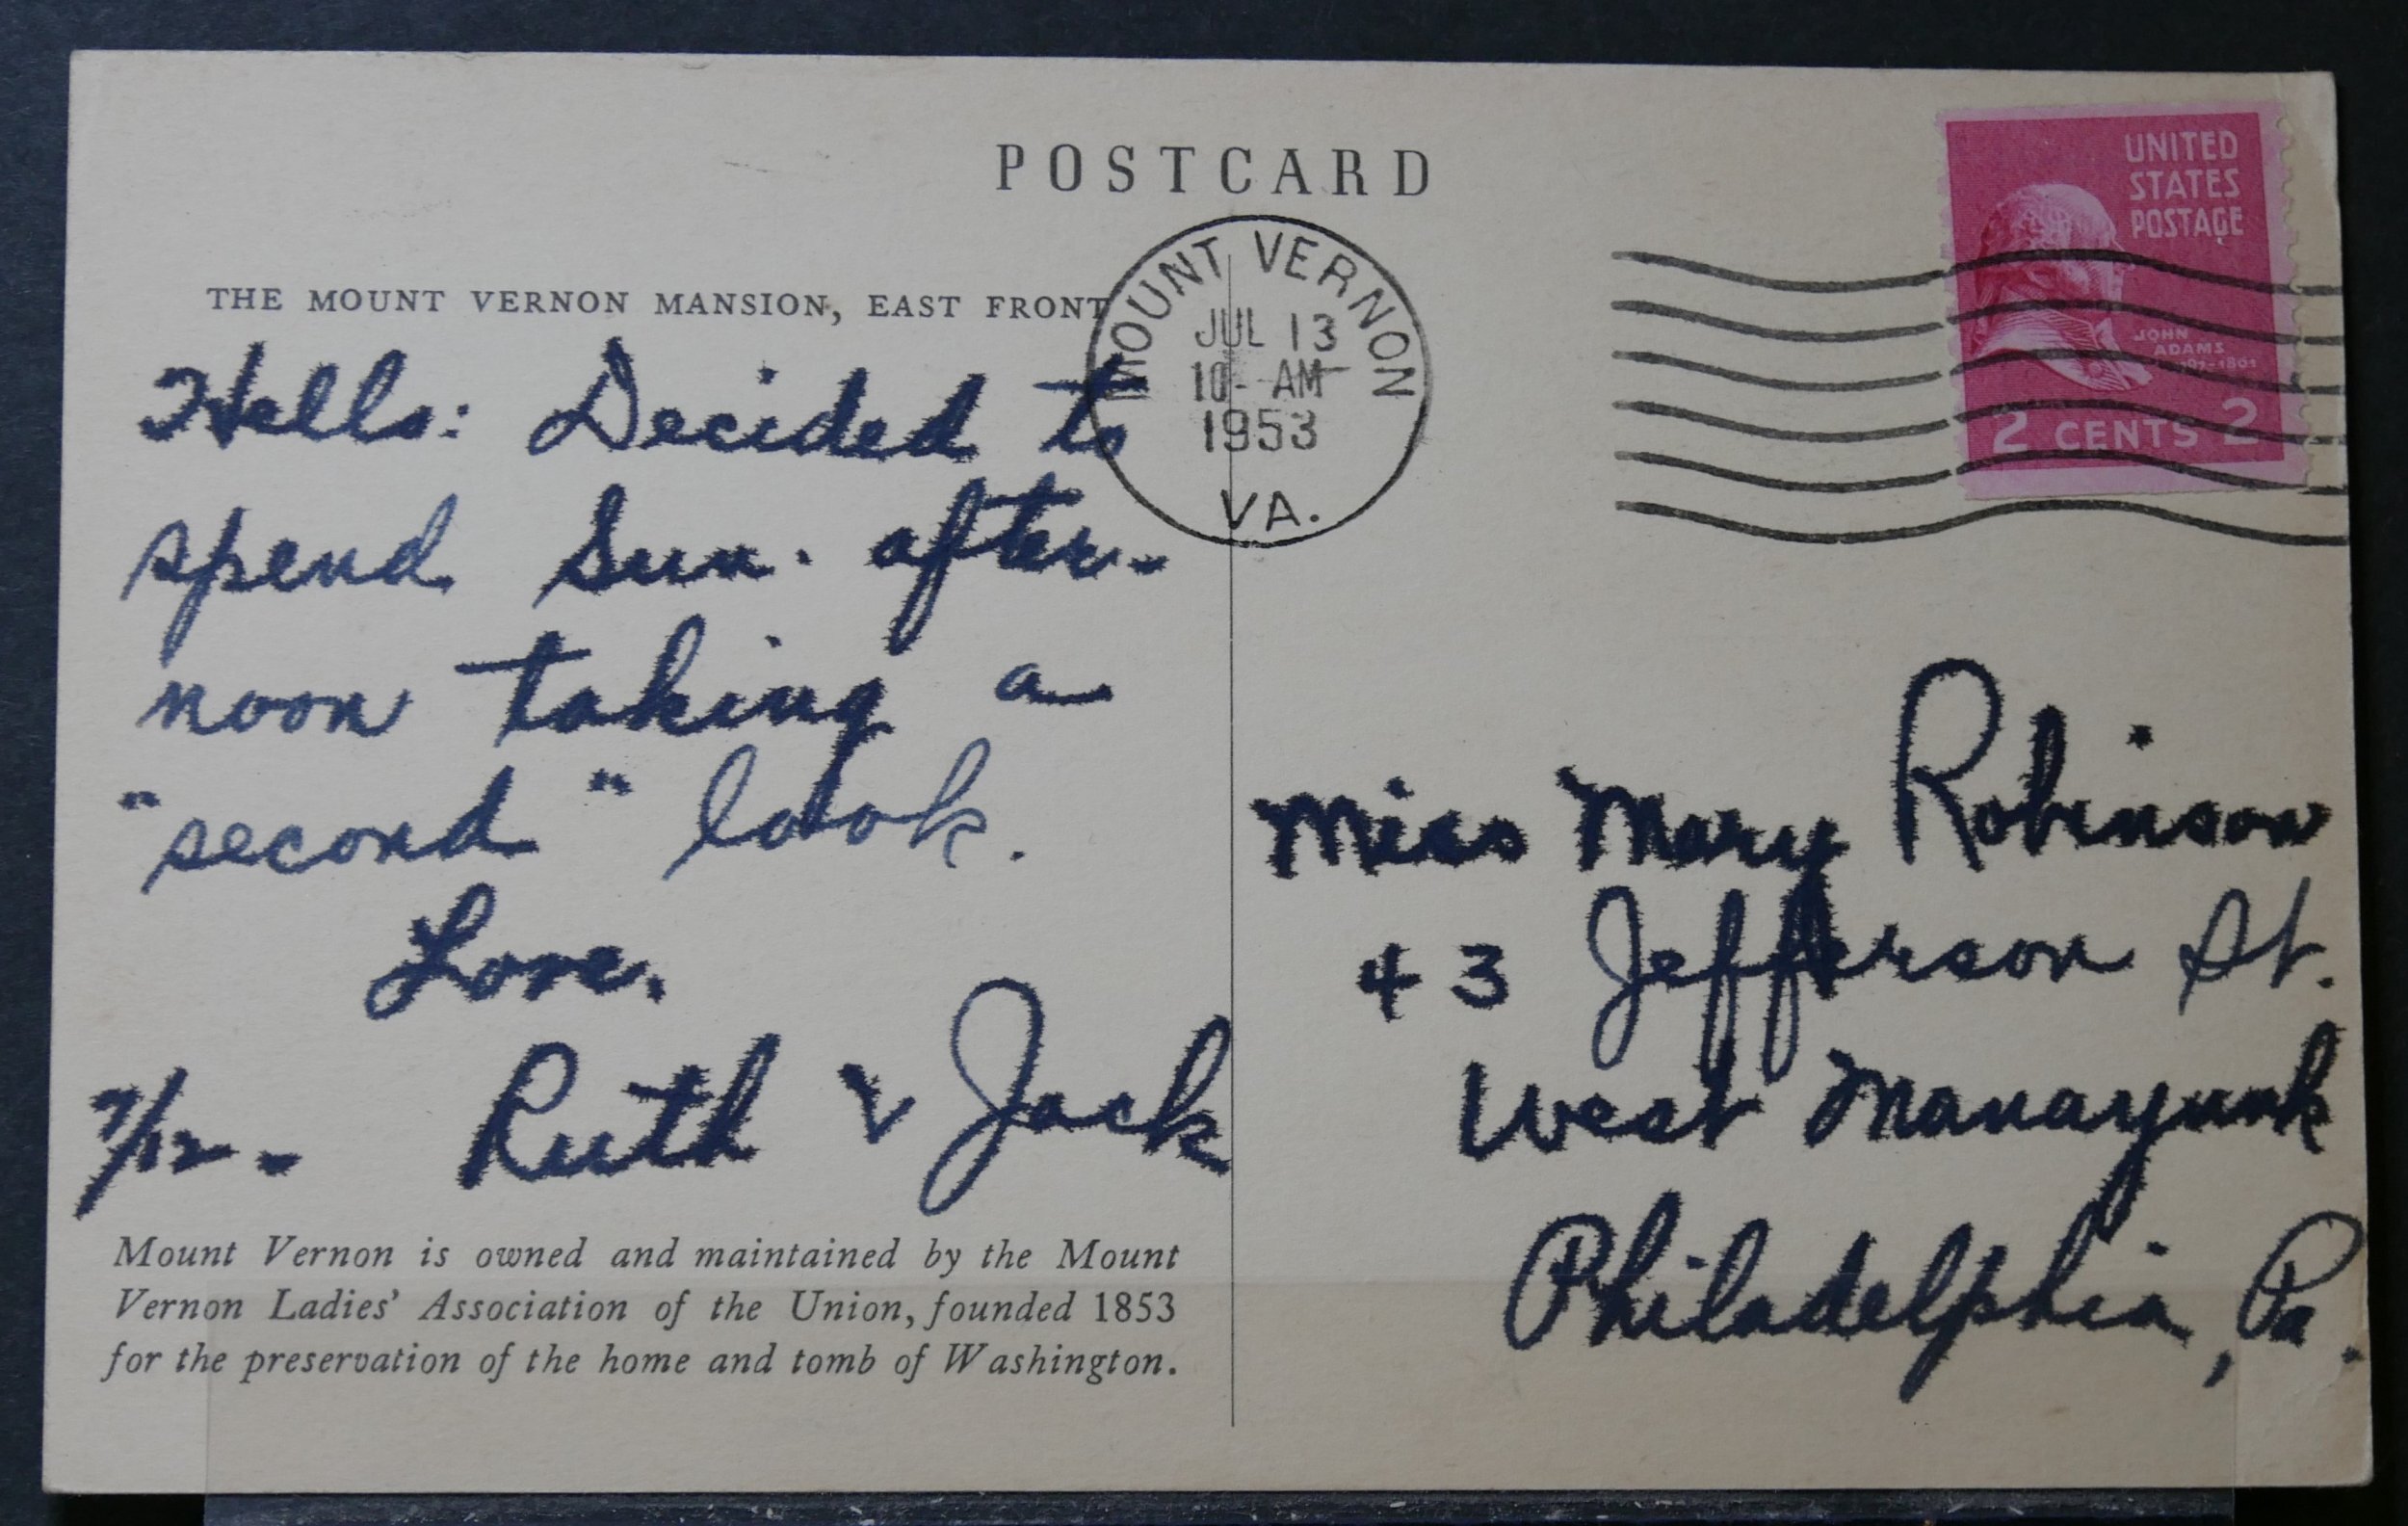 POSTCARD
THE MOUNT VERNON MANSION, EAST FRONT
Hello: Decided to
spend Sun. after-
noon taking a
"second" look.
Love,
7/12- Ruth & Jack
Mount Vernon is owned and maintained by the Mount
Vernon Ladies' Association of the Union, founded 1853
for the preservation of the home and tomb of Washington.
MOUNT VERNON
JUL 13
10- AM
1953
VA.
UNITED
STATES
POSTAGE
JOHN
ADAMS
1797-1801
2 CENTS 2
Miss Mary Robinson
43 Jefferson St.
West Manayunk
Philadelphia, Pa.